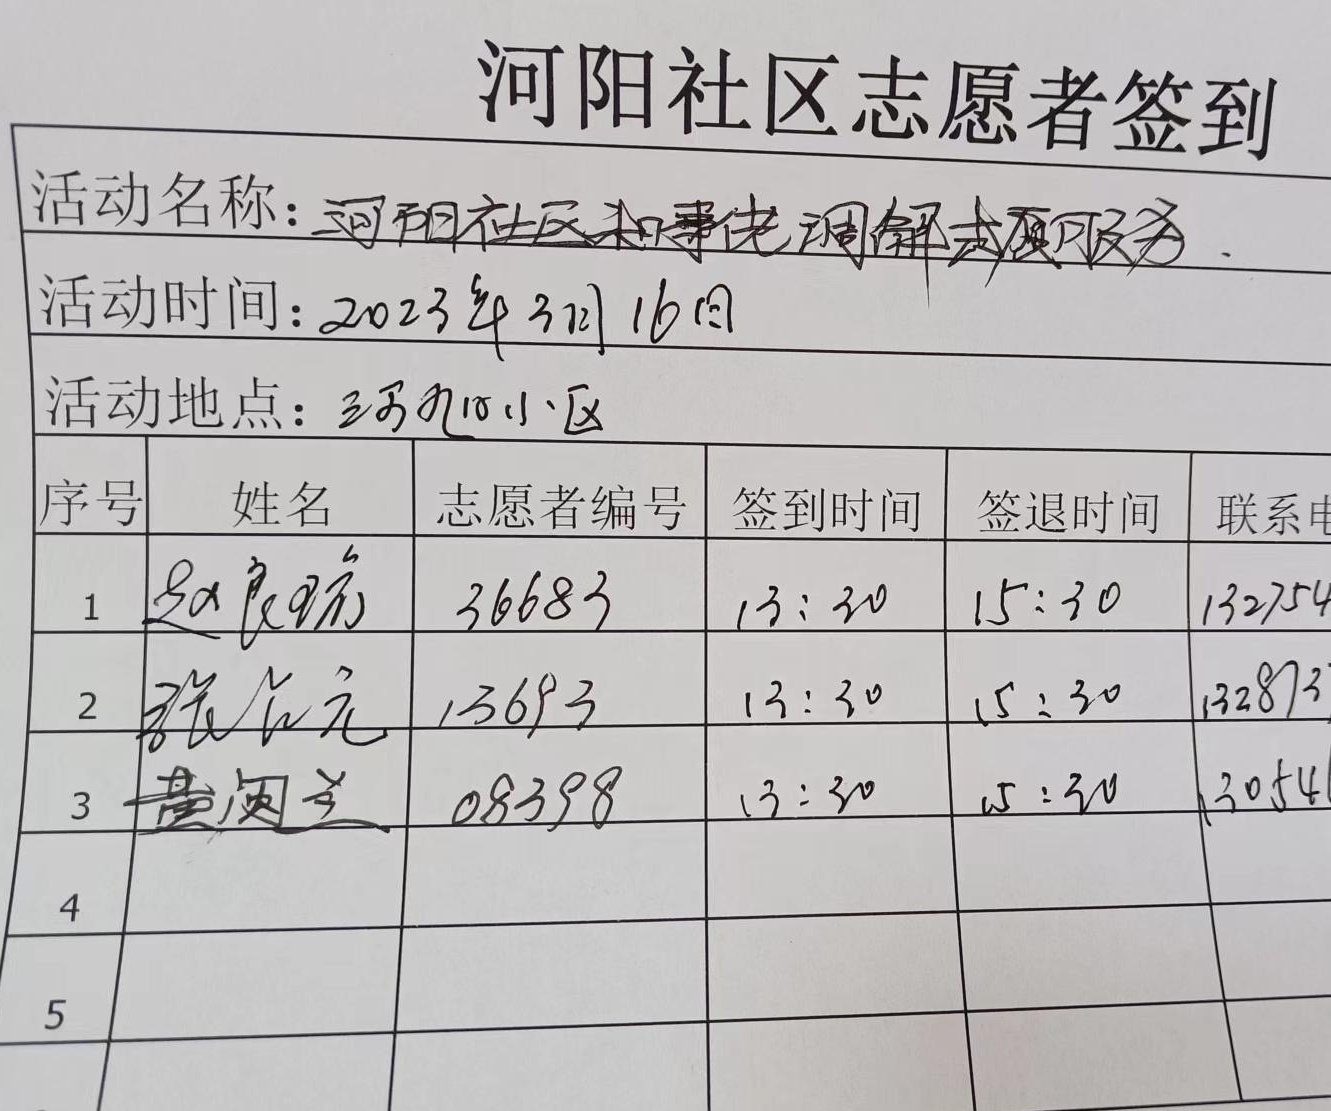 河阳社区志愿者签到
活动名称：河阳社区和事佬调解志愿服务.
活动时间：2023年3月16日
活动地点： 小区
序号 姓名 志愿者编号 签到时间 签退时间 联系电
1 赵良 36683 13:30 15:30 132754
2 张 元 13693 13:30 15:30 132873
3 黄闽兰 08398 13:30 15:30 13054
4
5